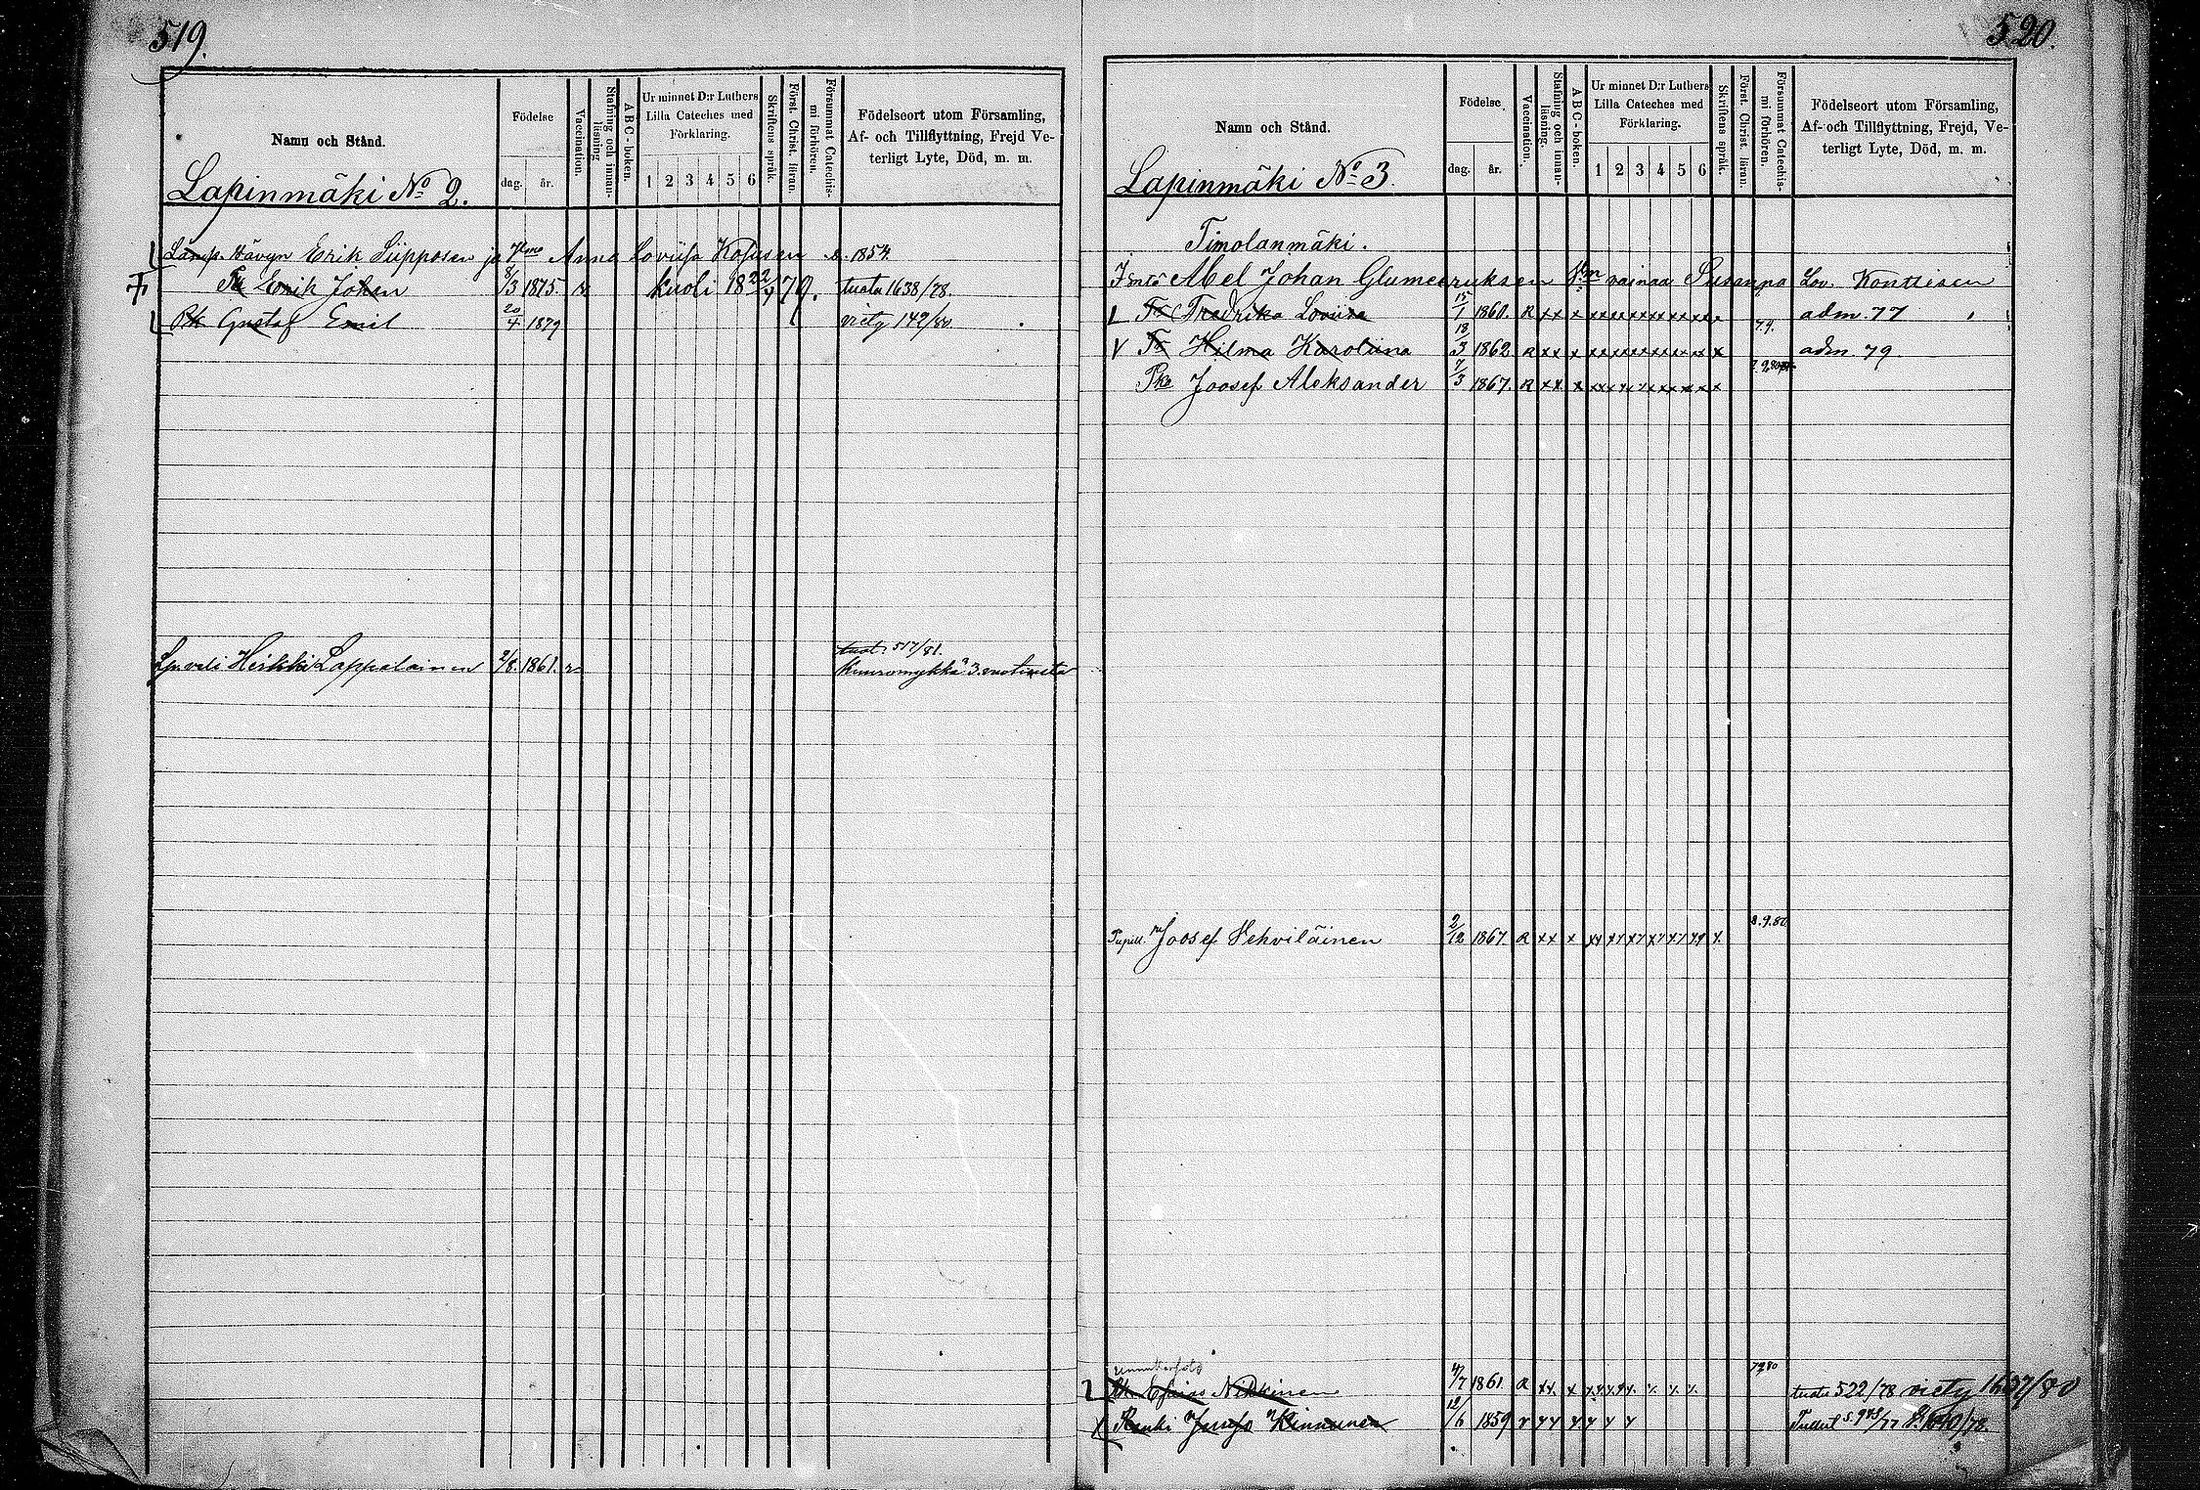 519.
Namn och Stånd.
Födelse
dag.
år.
Vaccination.
Stafning och innan-
läsning
ABC-boken.
Ur minnet D:r Luthers
Lilla Cateches med
Förklaring.
1 2 3 4 5 6
Skriftens språk.
Först. Christ. läran.
Försummat Catechis-
mi förhören.
Födelseort utom Församling,
Af- och Tillflyttning, Frejd Ve-
terligt Lyte, Död, m. m.
Lapinmäki No 2.
Lamp. Hävyn Erik Siipposen ja Anna Loviisa Kosusen s. 1854.
Erik Johan 8/3 1875. kuoli 18 22/4 79. tuatu 1638/78.
Pk Gustaf Emil 20/4 1879 viety 149/80.
Heikki Lappalainen 2/8. 1861. tuat. 517/81.
kuuromykkä 3. vuotiasta
520.
Namn och Stånd.
Födelse
dag.
år.
Vaccination.
Stafning och innan-
läsning.
ABC-boken.
Ur minnet D:r Luthers
Lilla Cateches med
Förklaring.
1 2 3 4 5 6
Skriftens språk.
Först. Christ. läran.
Försummat Catechis-
mi förhören.
Födelseort utom Församling,
Af- och Tillflyttning, Frejd, Ve-
terligt Lyte, Död, m. m.
Lapinmäki No 3.
Timolanmäki.
Abel Johan Glumeruksen vainaa Susanna Lov. Konttisen
Fredrika Loviisa 15/1 1860. R xx x adm. 77
Hilma Karoliina 18/3 1862 R xx x 79. adm. 79
Pka Joosef Aleksander 7/3 1867. R xx x
Pupill. Joosef Vehviläinen 2/12 1867 R xx x 8.9.80
Nikkinen 4/7 1861 R xx x 79 80 tuat. 522/78 viety 1637/80
Renki Juuso Kinnunen 12/6 1859